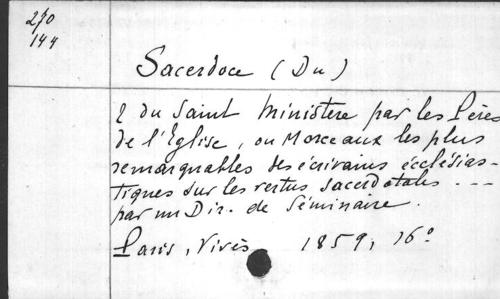 270
144
Sacerdoce (Du)
& du Saint Ministere par les Pères
de l'Eglise, ou Morceaux les plus
remarquables des écrivains ecclésias-
tiques sur les vertus sacerdotales ---
par un Dir. de Séminaire.
Paris, Vivès 1859, 16°